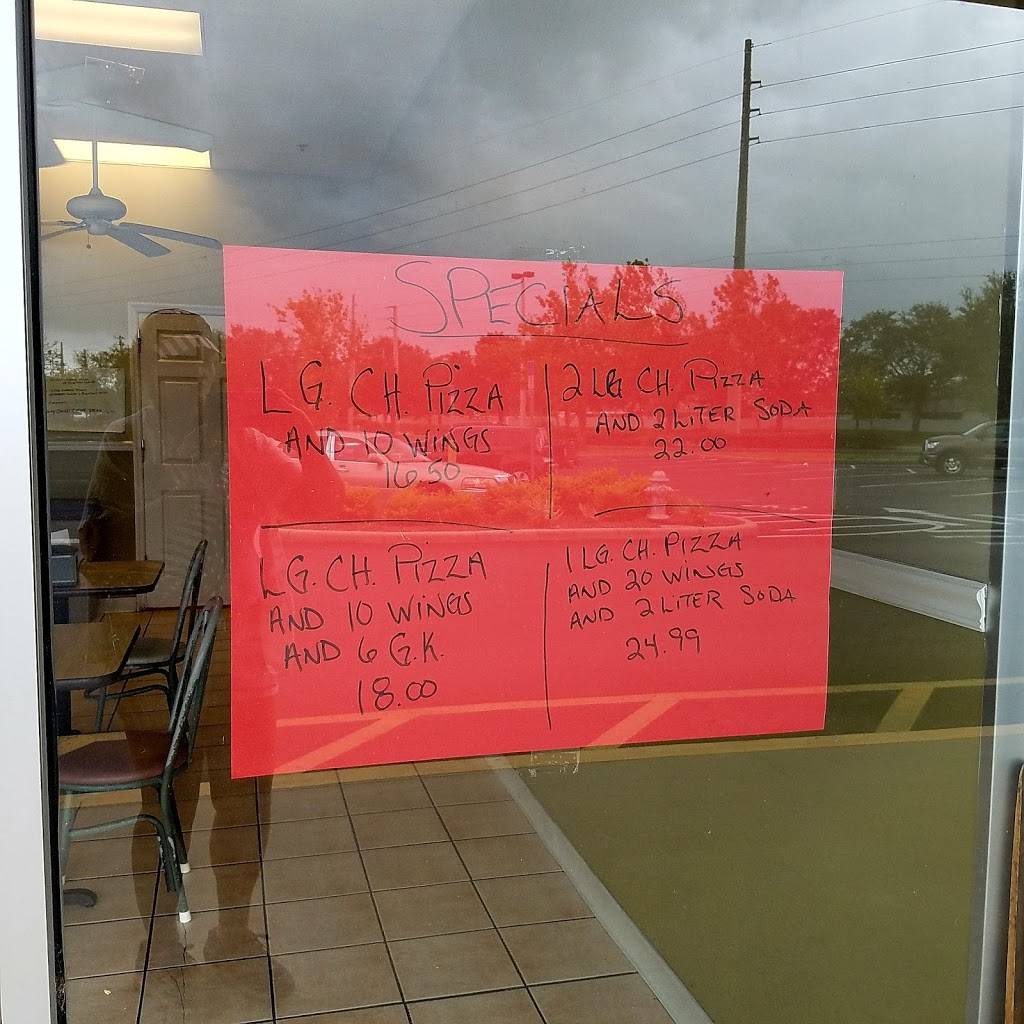 SPECIALS
LG. CH. PIZZA
AND 10 WINGS
16.50
2 LG CH. PIZZA
AND 2 LITER SODA
22.00
LG. CH. PIZZA
AND 10 WINGS
AND 6 G.K.
18.00
1 LG. CH. PIZZA
AND 20 WINGS
AND 2 LITER SODA
24.99